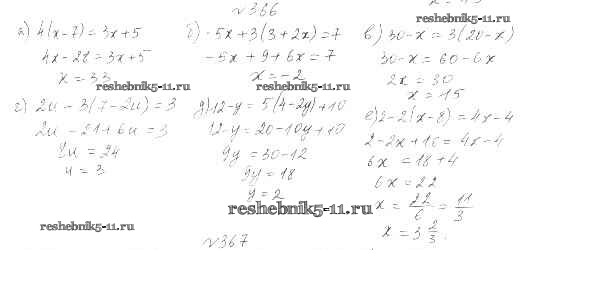 №366
reshebnik5-11.ru
а) 4(x-7)=3x+5
4x-28=3x+5
x=33
reshebnik5-11.ru
б) -5x+3(3+2x)=7
-5x+9+6x=7
x=-2
reshebnik5-11.ru
в) 30-x=3(20-x)
30-x=60-6x
2x=30
x=15
г) 2u-3(7-2u)=3
2u-21+6u=3
8u=24
u=3
д) 12-y=5(4-2y)+10
12-y=20-10y+10
9y=30-12
9y=18
y=2
е) 2-2(x-8)=4x-4
2-2x+16=4x-4
6x=18+4
6x=22
x=22/6=11/3
x=3 2/3
reshebnik5-11.ru
reshebnik5-11.ru
№367